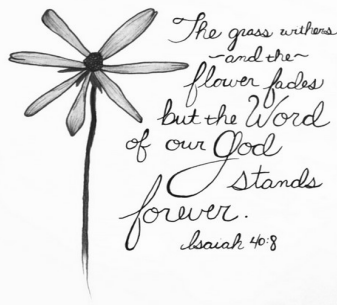 The grass withers
~and the~
flower fades
but the Word
of our God
stands
forever.
Isaiah 40:8